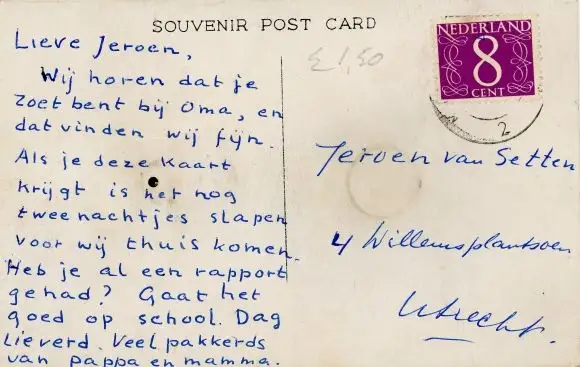 SOUVENIR POST CARD
Lieve Jeroen,
Wij horen dat je
zoet bent bij Oma, en
dat vinden wij fijn.
Als je deze kaart
krijgt is het nog
twee nachtjes slapen
voor wij thuis komen.
Heb je al een rapport
gehad? Gaat het
goed op school. Dag
Lieverd. Veel pakkerds
van pappa en mamma.
£1,50
NEDERLAND
8
CENT
2
Jeroen van Setten
4 Willemsplantsoen
Utrecht.